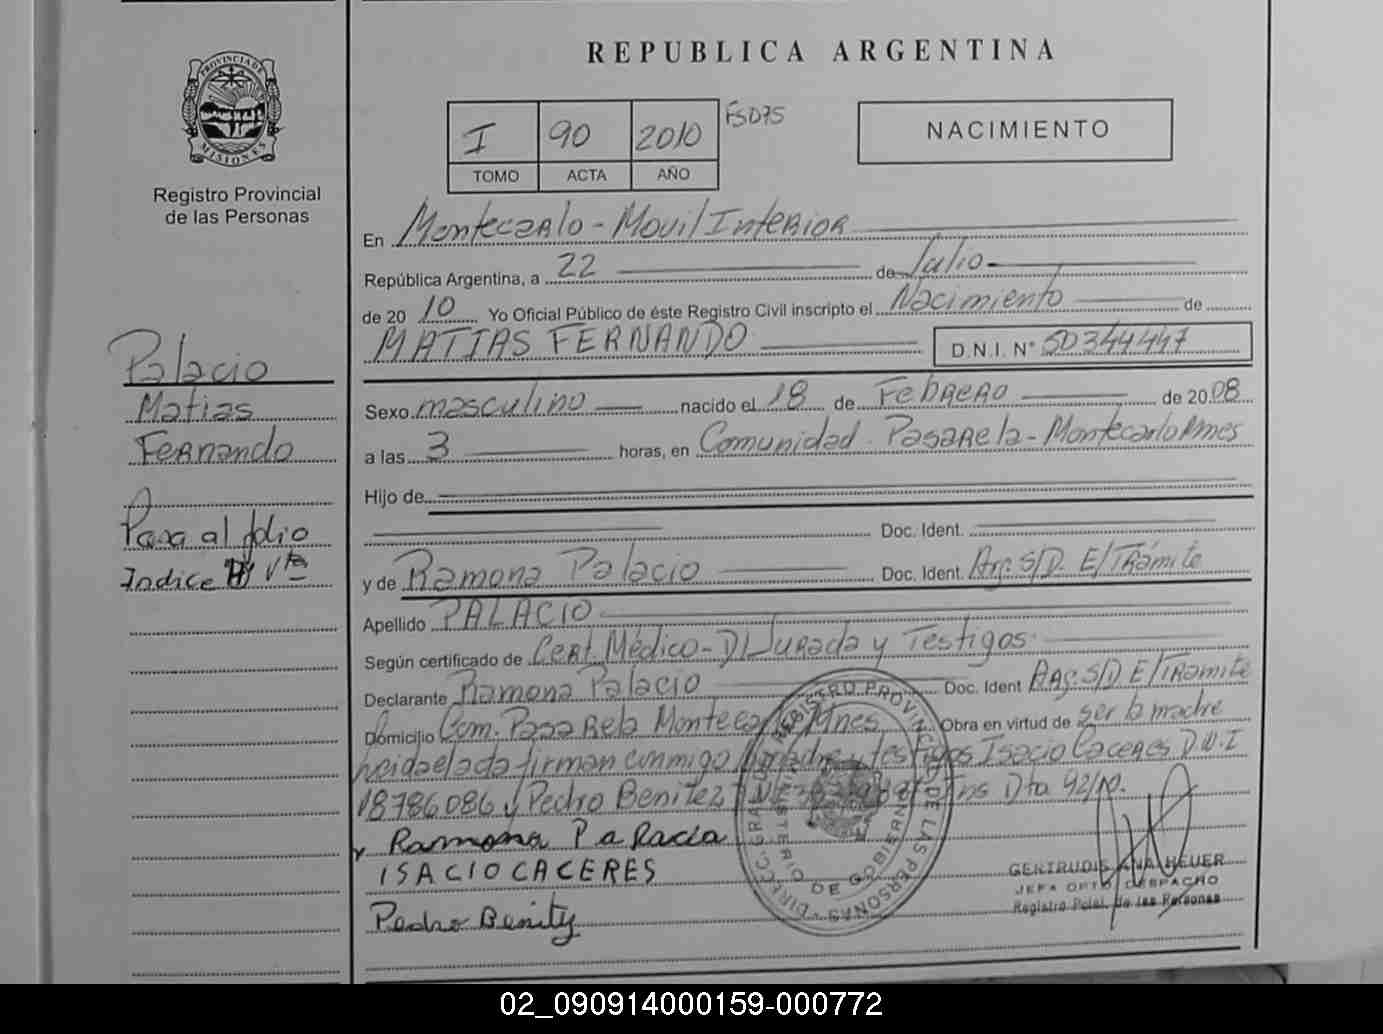 REPUBLICA ARGENTINA
PROVINCIA DE
MISIONES
Registro Provincial
de las Personas
I 90 2010 FSD75
TOMO ACTA AÑO
NACIMIENTO
En Montecarlo - Movil Interior
República Argentina, a 22 de Julio
de 2010 Yo Oficial Público de éste Registro Civil inscripto el Nacimiento de
MATIAS FERNANDO D.N.I. N° 50344447
Palacio
Matias
Fernando
Pasa al folio
Indice Vta
Sexo masculino nacido el 18 de Febrero de 2008
a las 3 horas, en Comunidad Pasarela - Montecarlo Mnes
Hijo de
Doc. Ident.
y de Ramona Palacio Doc. Ident. Arg. S/D. E/Trámite
Apellido PALACIO
Según certificado de Cert. Médico - D/Jurada y Testigos
Declarante Ramona Palacio Doc. Ident Arg. S/D E/Tramite
Domicilio Com. Pasarela Montecarlo Mnes Obra en virtud de ser la madre
firman conmigo testigos Isacio Caceres D.N.I
18786086 y Pedro Benitez Ins Dto 92/10.
Ramona Palacia
ISACIO CACERES
Pedro Benitz
GERTRUDIS ANA HEUER
JEFA DPTO DESPACHO
Registro Pcial. de las Personas
02_090914000159-000772